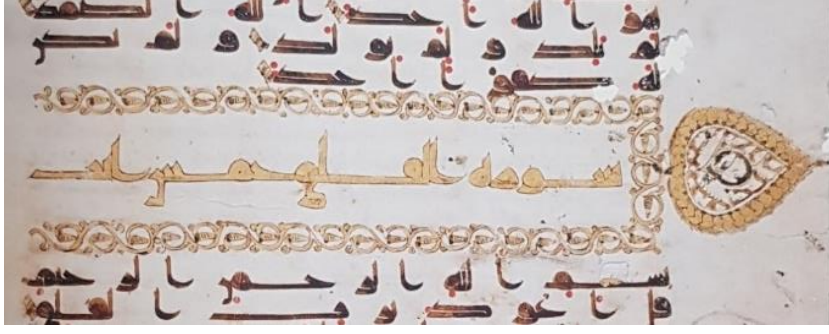 هو الله احد الله الصمد
لم يلد ولم يولد ولم يكن
له كفوا احد
سورة الفلق خمس ايات
بسم الله الرحمن الرحيم
قل اعوذ برب الفلق